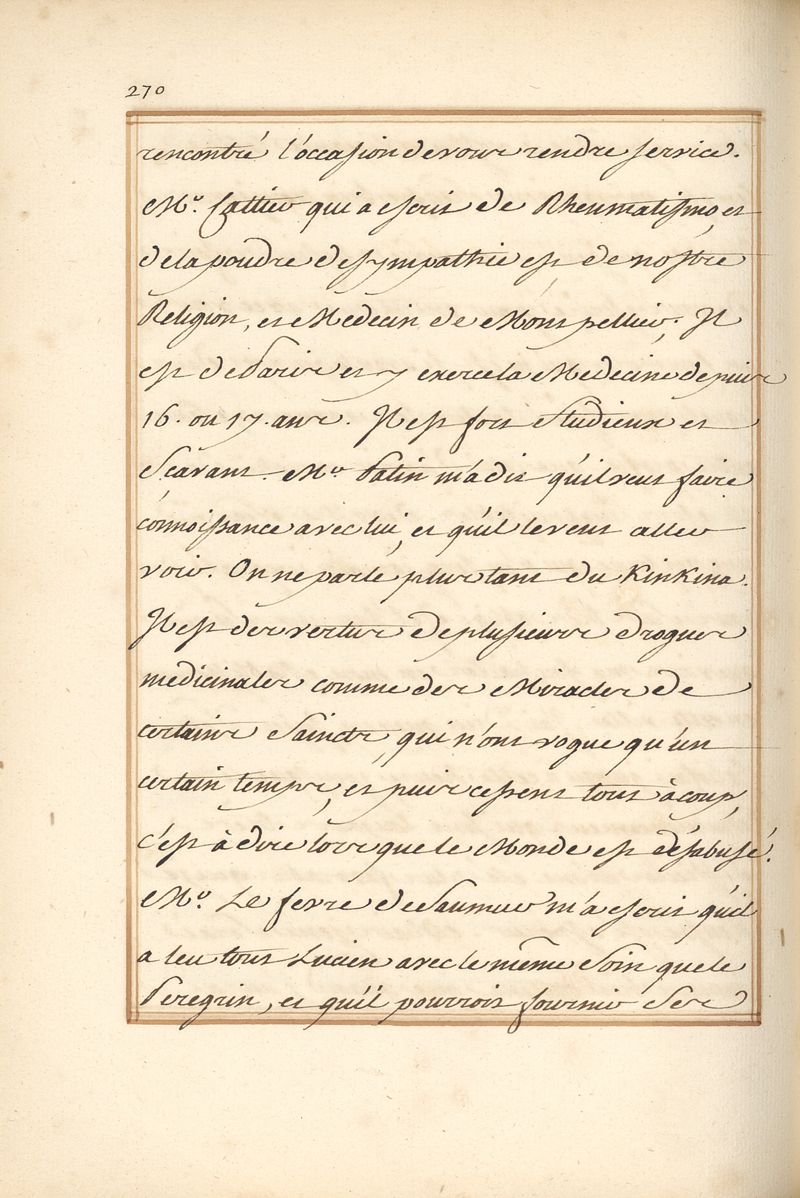 270
rencontré l'occasion de vous rendre service.
Mr. Cattier qui a escrit de Rheumatismo, et
de la poudre de sympathie est de nostre
Religion, et Medecin de Montpellier. Il
est de Paris et y exerce la Medecine depuis
16. ou 17. ans. Il est fort studieux et
Sçavant. Mr. Patin m'a dit qu'il veut faire
connoissance avec lui, et qu'il le veut aller
voir. On ne parle plus tant du KinKina.
Il est des vertus de plusieurs drogues
medicinales comme des Miracles de
certains Saincts, qui n'ont vogue qu'un
certain temps, et puis cessent tout à coup,
c'est à dire lors que le Monde est désabusé.
Mr. Le fevre de Saumur m'a escrit qu'il
a leu tout Lucien avec le même Soin que le
Peregrin, et qu'il pourroit fournir des